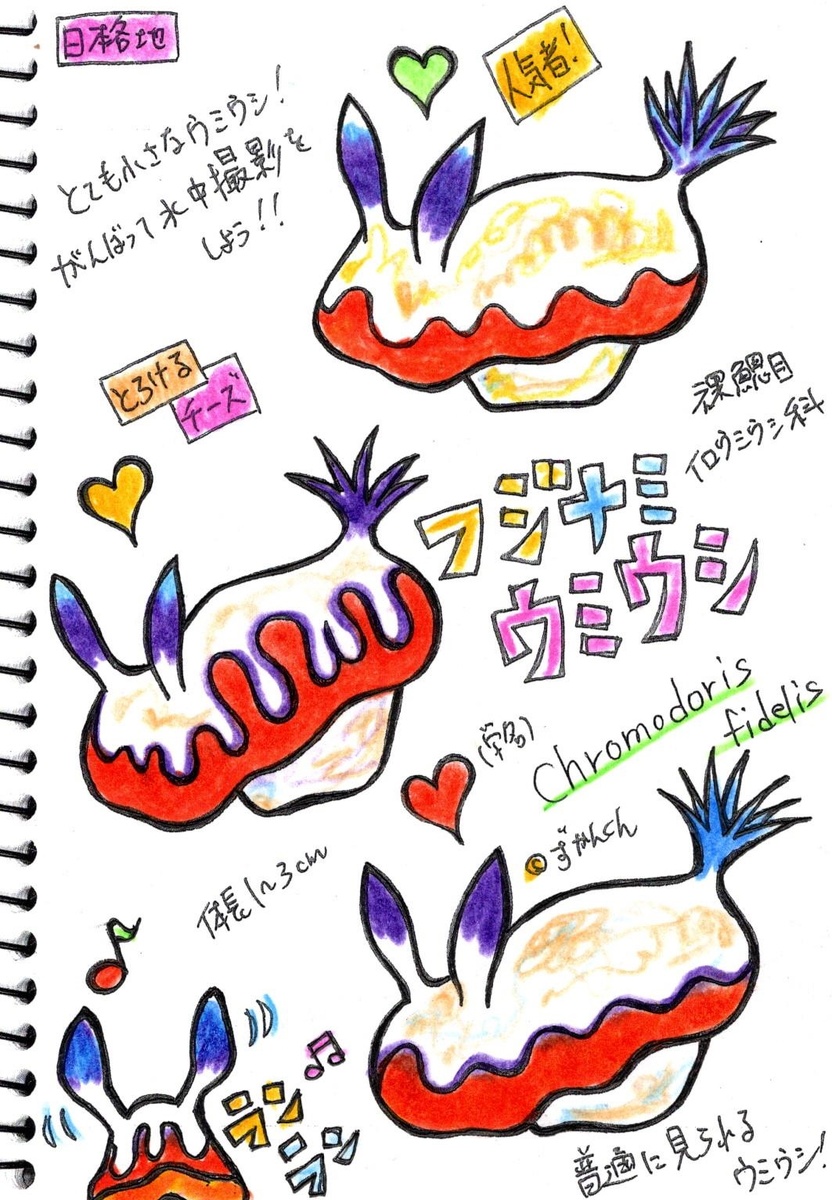 日本各地
人気者!
とても小さなウミウシ!
がんばって水中撮影を
しよう!!
とろける
チーズ
裸鰓目
イロウミウシ科
フジナミ
ウミウシ
(学名)
Chromodoris
fidelis
©ずかんくん
体長1~3cm
ラン
ラン
普通に見られる
ウミウシ!